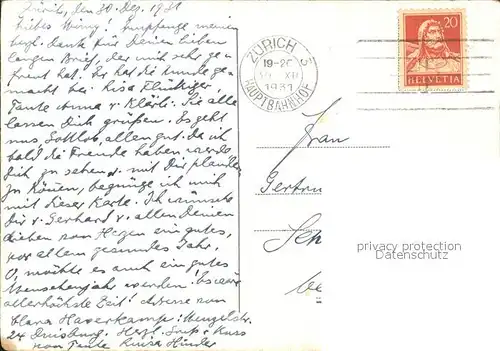 Zürich, den 30. Dez. 1931
Liebes Winny! Empfange meinen
herzl. Dank für Deinen lieben
langen Brief, der mich sehr ge-
freut hat. Er hat die Runde ge-
macht bei Lisa Flückiger,
Tante Anna v. Klärli. Sie alle
lassen Dich grüßen. Es geht
uns, Gottlob, allen gut. Da ich
bald die Freude haben werde
Dich zu sehen u. mit Dir plaudern
zu können, begnüge ich mich
mit dieser Karte. Ich wünsche
Dir v. Gerhard v. allen Deinen
Lieben von Herzen ein gutes,
vor allem gesundes Jahr.
O, möchte es auch ein gutes
Menschenjahr werden! Es wäre
allerhöchste Zeit! Adresse von
Clara Haverkamp: Wenzelstr.
24 Duisburg. Herzl. Gruß u. Kuss
von Tante Luisa
ZÜRICH 5
19-20
XII
1931
HAUPTBAHNHOF
20
HELVETIA
Frau
Gertru
privacy protection
Datenschutz